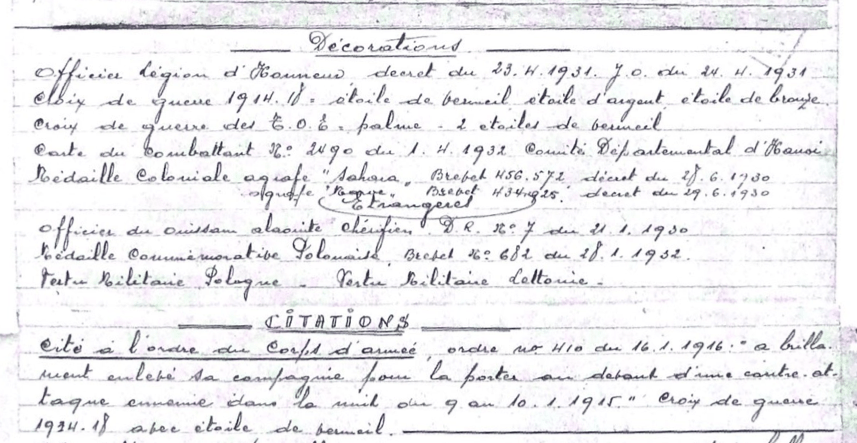 Décorations
Officier Légion d'Honneur, decret du 23.4.1931. J.O. du 24.4.1931
Croix de guerre 1914.18 = étoile de vermeil étoile d'argent, etoile de bronze
Croix de guerre des T.O.E. = palme - 2 etoiles de vermeil
Carte du Combattant No. 2490 du 1.4.1932 Comité Départemental d'Hanoi
Médaille Coloniale agrafe "Sahara" Brevet 456.572 décret du 28.6.1930
agrafe "Maroc" Brevet 434.925. decret du 29.6.1930
Etrangeres
Officier du ouissam alaouite chérifien D.R. No. 7 du 21.1.1930
Médaille Commémorative Polonaise, Brevet No. 682 du 28.1.1932.
Vertu Militaire Pologne - Vertu Militaire Lettonie -
CITATIONS
Cité à l'ordre du Corps d'armée, ordre no 410 du 16.1.1916 :" a brilla-
ment enlevé sa compagnie pour la porter au devant d'une contre-at-
taque ennemie dans la nuit du 9 au 10.1.1915" Croix de guerre
1924.18 avec étoile de vermeil.